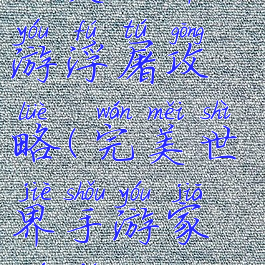 yóu fú tú gōng
游浮屠攻
lüè wán měi shì
略(完美世
jiè shǒu yóu jiā
界手游家